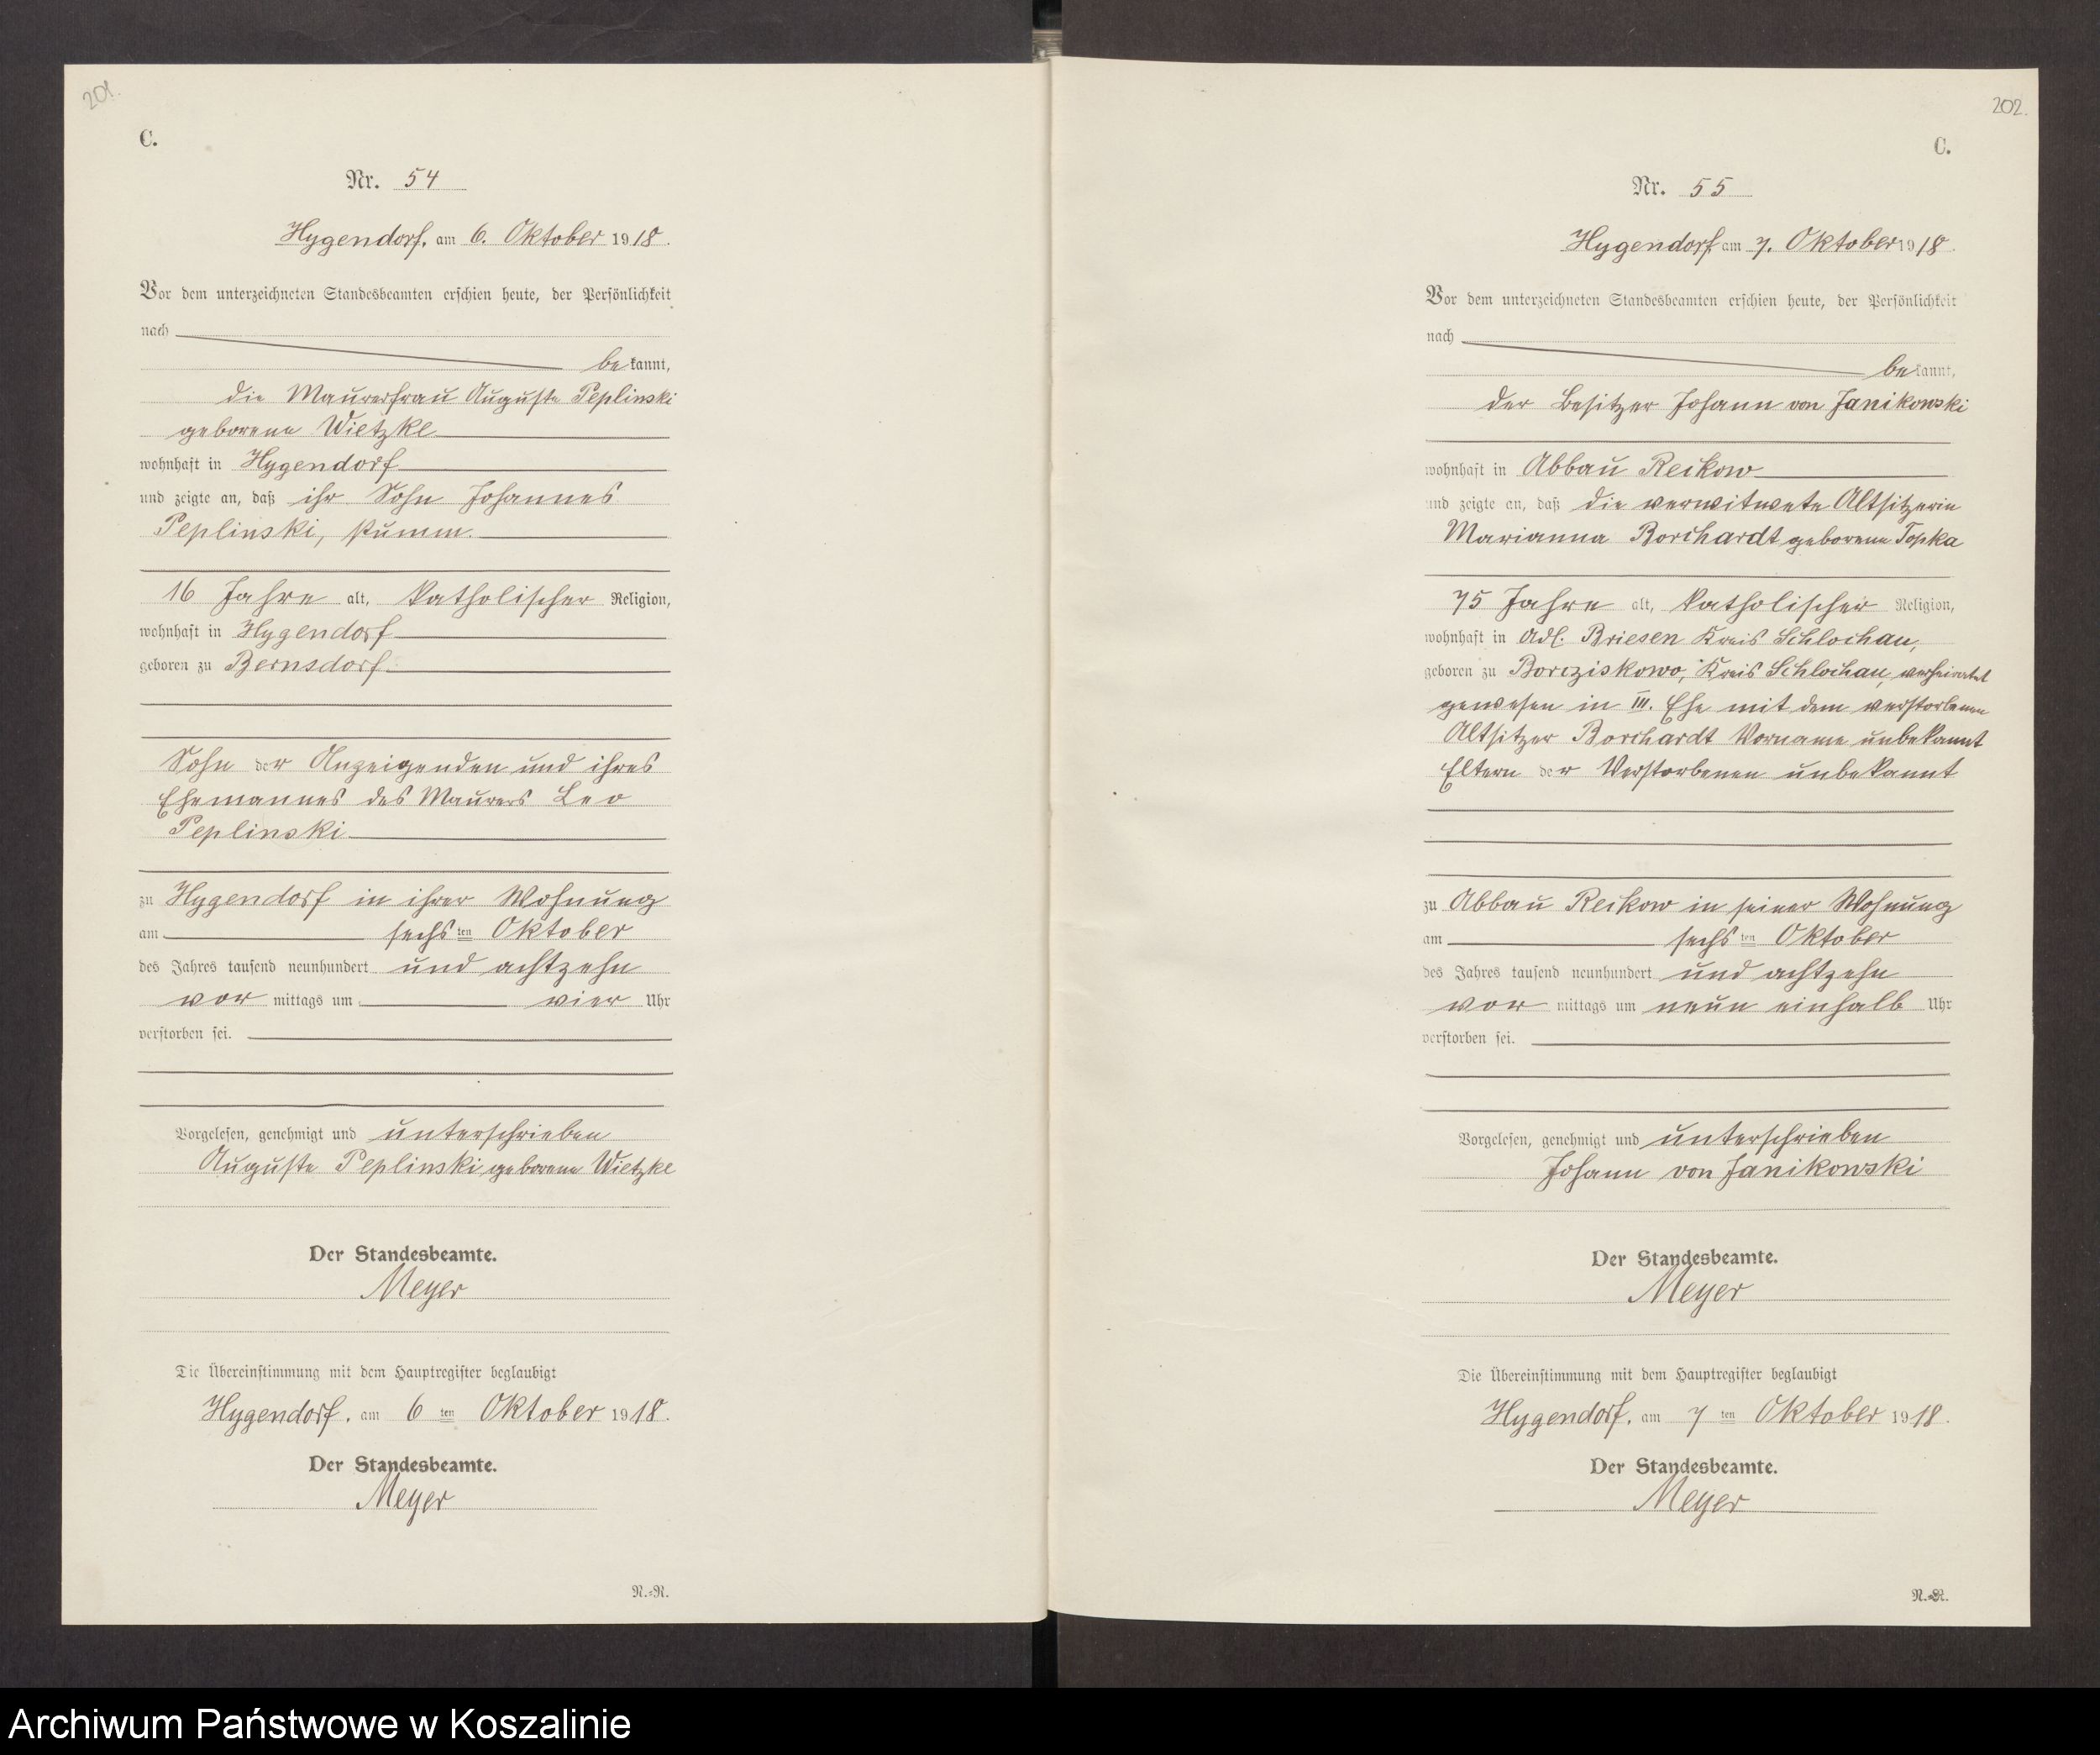 201.
C.
Nr. 54
Hygendorf, am 6. Oktober 1918.
Vor dem unterzeichneten Standesbeamten erschien heute, der Persönlichkeit
nach
bekannt,
die Maurerfrau Auguste Peplinski
geborene Wietzke
wohnhaft in Hygendorf
und zeigte an, daß ihr Sohn Johannes
Peplinski, stumm.
16 Jahre alt, katholischer Religion,
wohnhaft in Hygendorf
geboren zu Bernsdorf
Sohn der Anzeigenden und ihres
Ehemannes des Maurers Leo
Peplinski
zu Hygendorf in ihrer Wohnung
am sechsten Oktober
des Jahres tausend neunhundert und achtzehn
vormittags um vier Uhr
verstorben sei.
Vorgelesen, genehmigt und unterschrieben
Auguste Peplinski geborene Wietzke
Der Standesbeamte.
Meyer
Die Übereinstimmung mit dem Hauptregister beglaubigt
Hygendorf, am 6ten Oktober 1918.
Der Standesbeamte.
Meyer
N.=R.
202.
C.
Nr. 55
Hygendorf am 7. Oktober 1918.
Vor dem unterzeichneten Standesbeamten erschien heute, der Persönlichkeit
nach
bekannt,
der Besitzer Johann von Janikowski
wohnhaft in Abbau Reikow
und zeigte an, daß die verwitwete Altsitzerin
Marianna Borchardt geborene Topka
75 Jahre alt, katholischer Religion,
wohnhaft in Adl. Briesen Kreis Schlochau,
geboren zu Borcziskowo, Kreis Schlochau, verheiratet
gewesen in III. Ehe mit dem verstorbenen
Altsitzer Borchardt Vorname unbekannt
Eltern der Verstorbenen unbekannt
zu Abbau Reikow in seiner Wohnung
am sechsten Oktober
des Jahres tausend neunhundert und achtzehn
vormittags um neun einhalb Uhr
verstorben sei.
Vorgelesen, genehmigt und unterschrieben
Johann von Janikowski
Der Standesbeamte.
Meyer
Die Übereinstimmung mit dem Hauptregister beglaubigt
Hygendorf, am 7ten Oktober 1918.
Der Standesbeamte.
Meyer
N.=R.
Archiwum Państwowe w Koszalinie